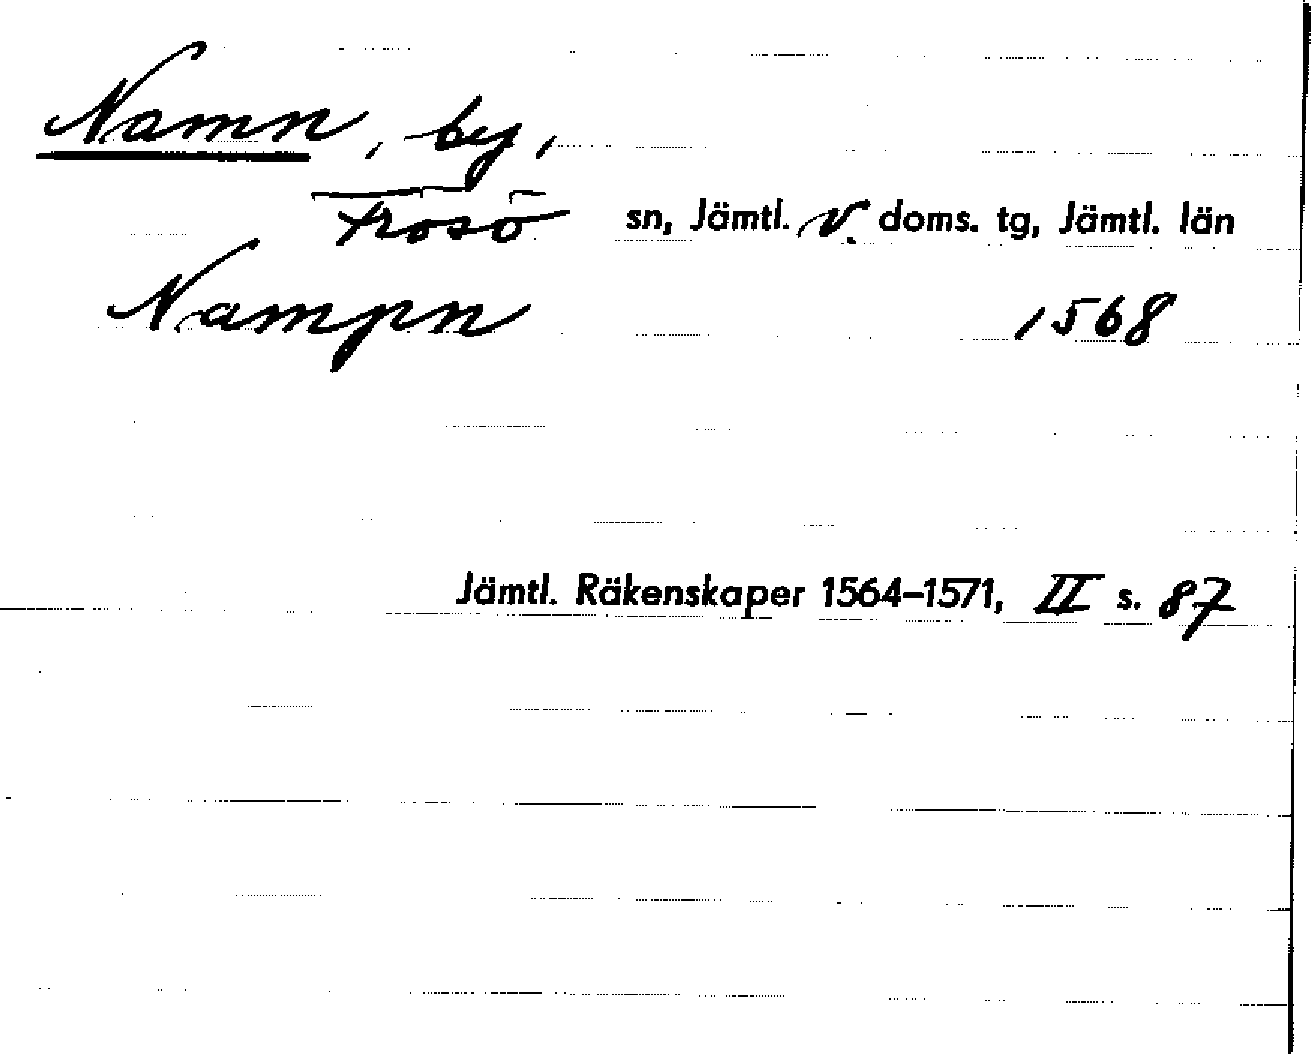 Namn, by,
Frösö sn, Jämtl. v. doms. tg, Jämtl. län
Nampn 1568
Jämtl. Räkenskaper 1564–1571, II s. 87